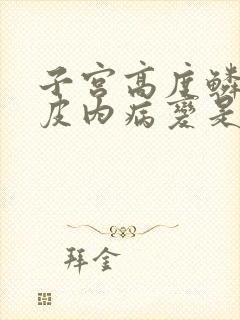 子宫高度鳞
皮内病变是
拜金